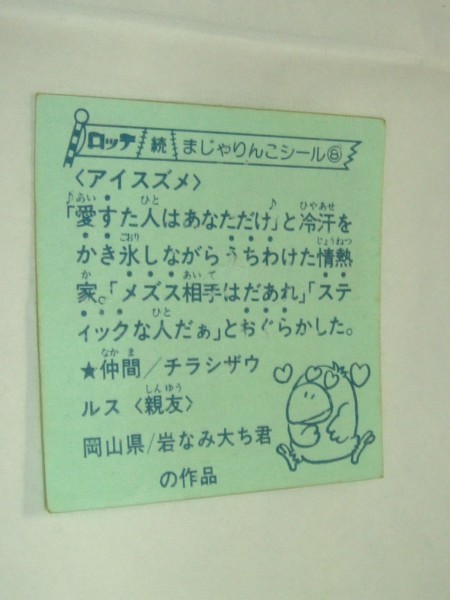 ロッテ 続 まじゃりんこシール⑧
〈アイスズメ〉
♪「愛すた人はあなただけ♪」と冷汗を
かき氷しながらうちわけた情熱
家。「メズス相手はだあれ」「ステ
ィックな人だぁ」とおぐらかした。
★仲間/チラシザウ
ルス〈親友〉
岡山県/岩なみ大ち君
の作品